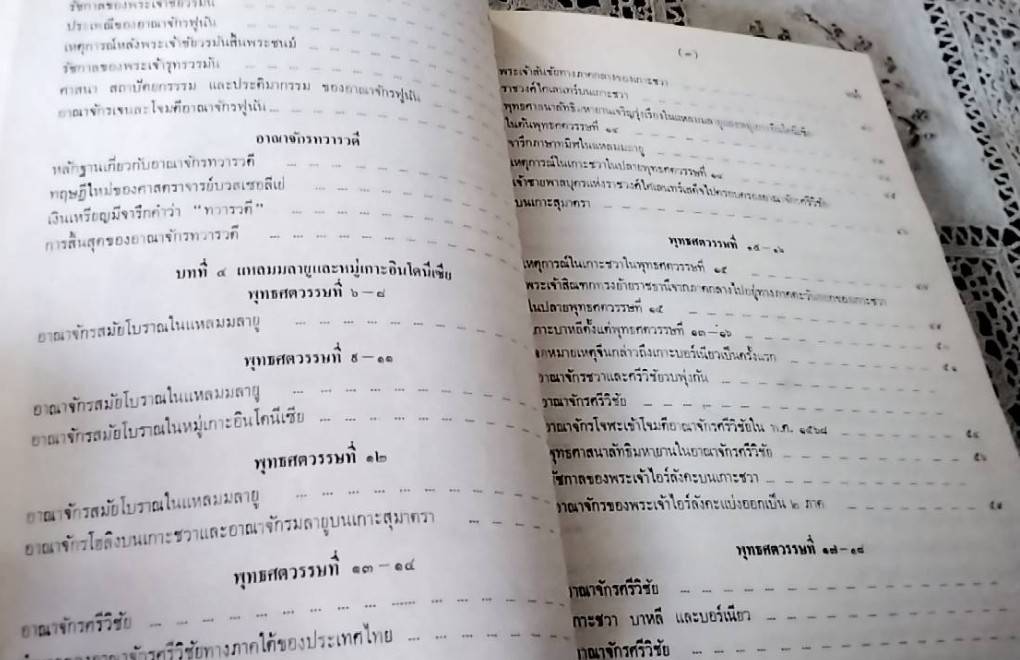 รัชกาลของพระเจ้าชัยวรมัน
ประเพณีของอาณาจักรฟูนัน
เหตุการณ์หลังพระเจ้าชัยวรมันสิ้นพระชนม์
รัชกาลของพระเจ้ารุทรวรมัน
ศาสนา สถาปัตยกรรม และประติมากรรม ของอาณาจักรฟูนัน
อาณาจักรเจนละโจมตีอาณาจักรฟูนัน
อาณาจักรทวารวดี
หลักฐานเกี่ยวกับอาณาจักรทวารวดี
ทฤษฎีใหม่ของศาสตราจารย์บวสเซอลีเย่
เงินเหรียญมีจารึกคำว่า "ทวารวดี"
การสิ้นสุดของอาณาจักรทวารวดี
บทที่ ๔ แหลมมลายูและหมู่เกาะอินโดนีเซีย
พุทธศตวรรษที่ ๖ – ๘
อาณาจักรสมัยโบราณในแหลมมลายู
พุทธศตวรรษที่ ๙ – ๑๑
อาณาจักรสมัยโบราณในแหลมมลายู
อาณาจักรสมัยโบราณในหมู่เกาะอินโดนีเซีย
พุทธศตวรรษที่ ๑๒
อาณาจักรสมัยโบราณในแหลมมลายู
อาณาจักรโฮลิงบนเกาะชวาและอาณาจักรมลายูบนเกาะสุมาตรา
พุทธศตวรรษที่ ๑๓ – ๑๔
อาณาจักรศรีวิชัย
ของอาณาจักรศรีวิชัยทางภาคใต้ของประเทศไทย
(๓)
พระเจ้าสันชัยทางภาคกลางของเกาะชวา
ราชวงศ์ไศเลนทร์บนเกาะชวา
พุทธศาสนาลัทธิมหายานเจริญรุ่งเรืองในแหลมมลายูและหมู่เกาะอินโดนีเซีย
ในต้นพุทธศตวรรษที่ ๑๔
จารึกภาษาทมิฬในแหลมมลายู
เหตุการณ์ในเกาะชวาในปลายพุทธศตวรรษที่ ๑๔
เจ้าชายพาลบุตรแห่งราชวงศ์ไศเลนทร์เสด็จไปครอบครองอาณาจักรศรีวิชัย
บนเกาะสุมาตรา
พุทธศตวรรษที่ ๑๕ – ๑๖
เหตุการณ์ในเกาะชวาในพุทธศตวรรษที่ ๑๕
พระเจ้าสิณฑกทรงย้ายราชธานีจากภาคกลางไปอยู่ทางภาคตะวันออกของเกาะชวา
ในปลายพุทธศตวรรษที่ ๑๕
เกาะบาหลีตั้งแต่พุทธศตวรรษที่ ๑๓ – ๑๖
จดหมายเหตุจีนกล่าวถึงเกาะบอร์เนียวเป็นครั้งแรก
อาณาจักรชวาและศรีวิชัยรบพุ่งกัน
อาณาจักรศรีวิชัย
อาณาจักรโจฬะเข้าโจมตีอาณาจักรศรีวิชัยใน พ.ศ. ๑๕๖๘
พุทธศาสนาลัทธิมหายานในอาณาจักรศรีวิชัย
รัชกาลของพระเจ้าไอร์ลังคะบนเกาะชวา
อาณาจักรของพระเจ้าไอร์ลังคะแบ่งออกเป็น ๒ ภาค
พุทธศตวรรษที่ ๑๗ – ๑๘
อาณาจักรศรีวิชัย
เกาะชวา บาหลี และบอร์เนียว
อาณาจักรศรีวิชัย